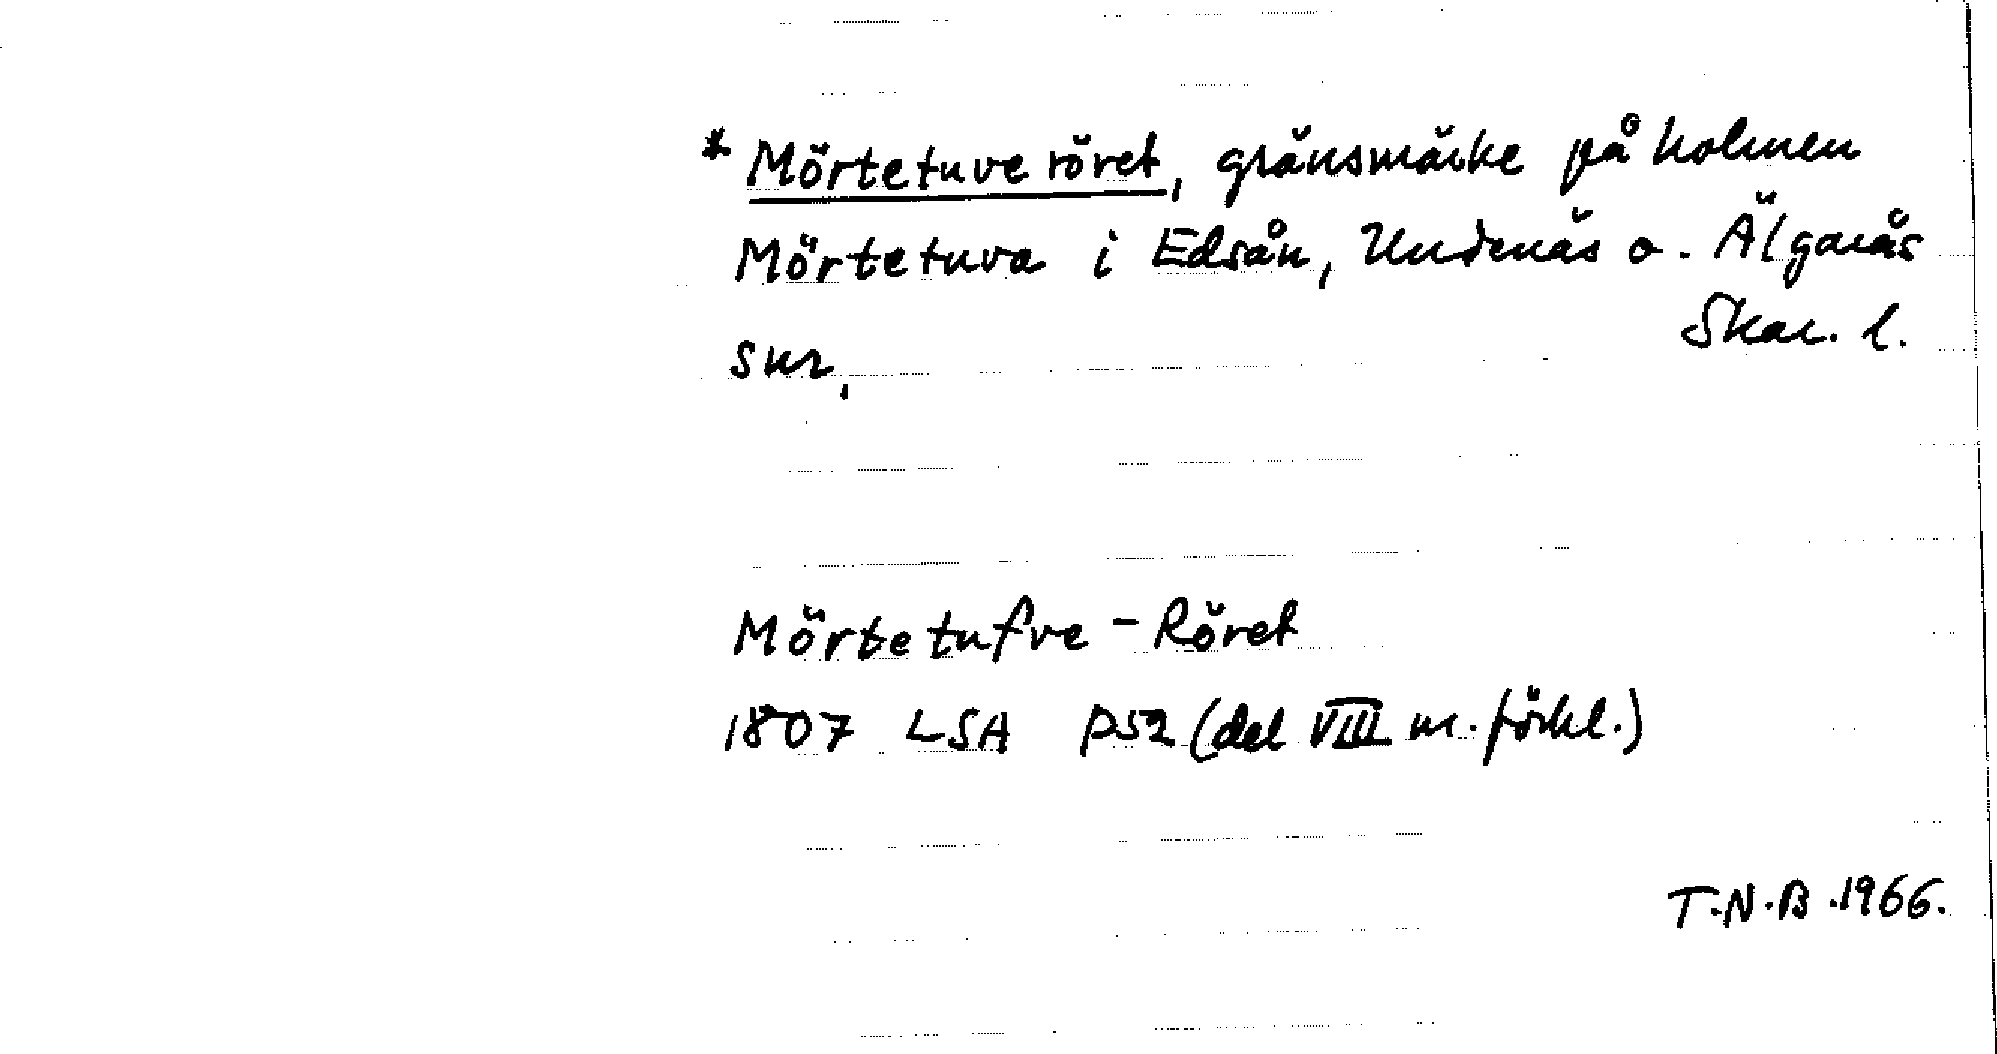 * Mörtetuveröret, gränsmärke på holmen
Mörtetuva i Edsån, Undenäs o. Älgarås
snr, Skar. l.
Mörtetufve-Röret
1807 LSA P52 (del VIII m. förkl.)
T.N.B. 1966.